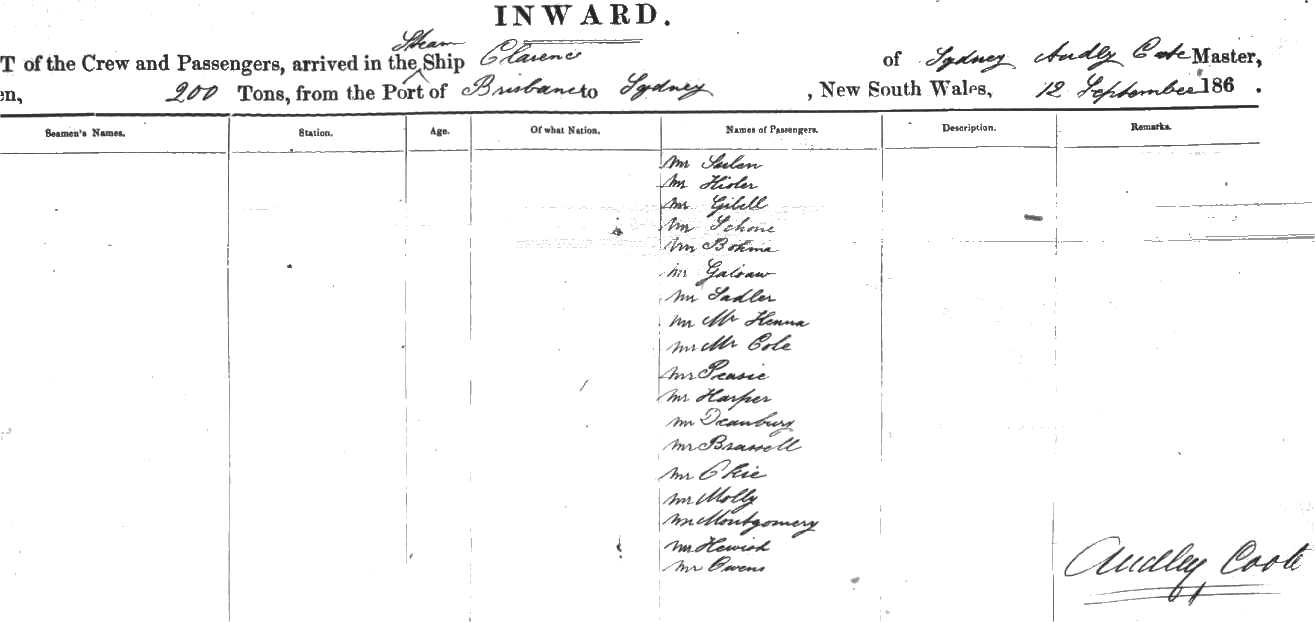 INWARD.
T of the Crew and Passengers, arrived in the Steam Ship Clarence of Sydney Audly Cote Master,
en, 200 Tons, from the Port of Brisbane to Sydney, New South Wales, 12 September 186 .
Seamen's Names. Station. Age. Of what Nation. Names of Passengers. Description. Remarks.
Mr
Mr Hisler
Mr Gibell
Mr Schone
Mr Bohma
Mr
Mr Sadler
Mr Mr Henna
Mr Mr Cole
Mr Peasie
Mr Harper
Mr
Mr Brassell
Mr
Mr Molly
Mr Montgomery
Mr Hewish
Mr Owens
Audley Coote